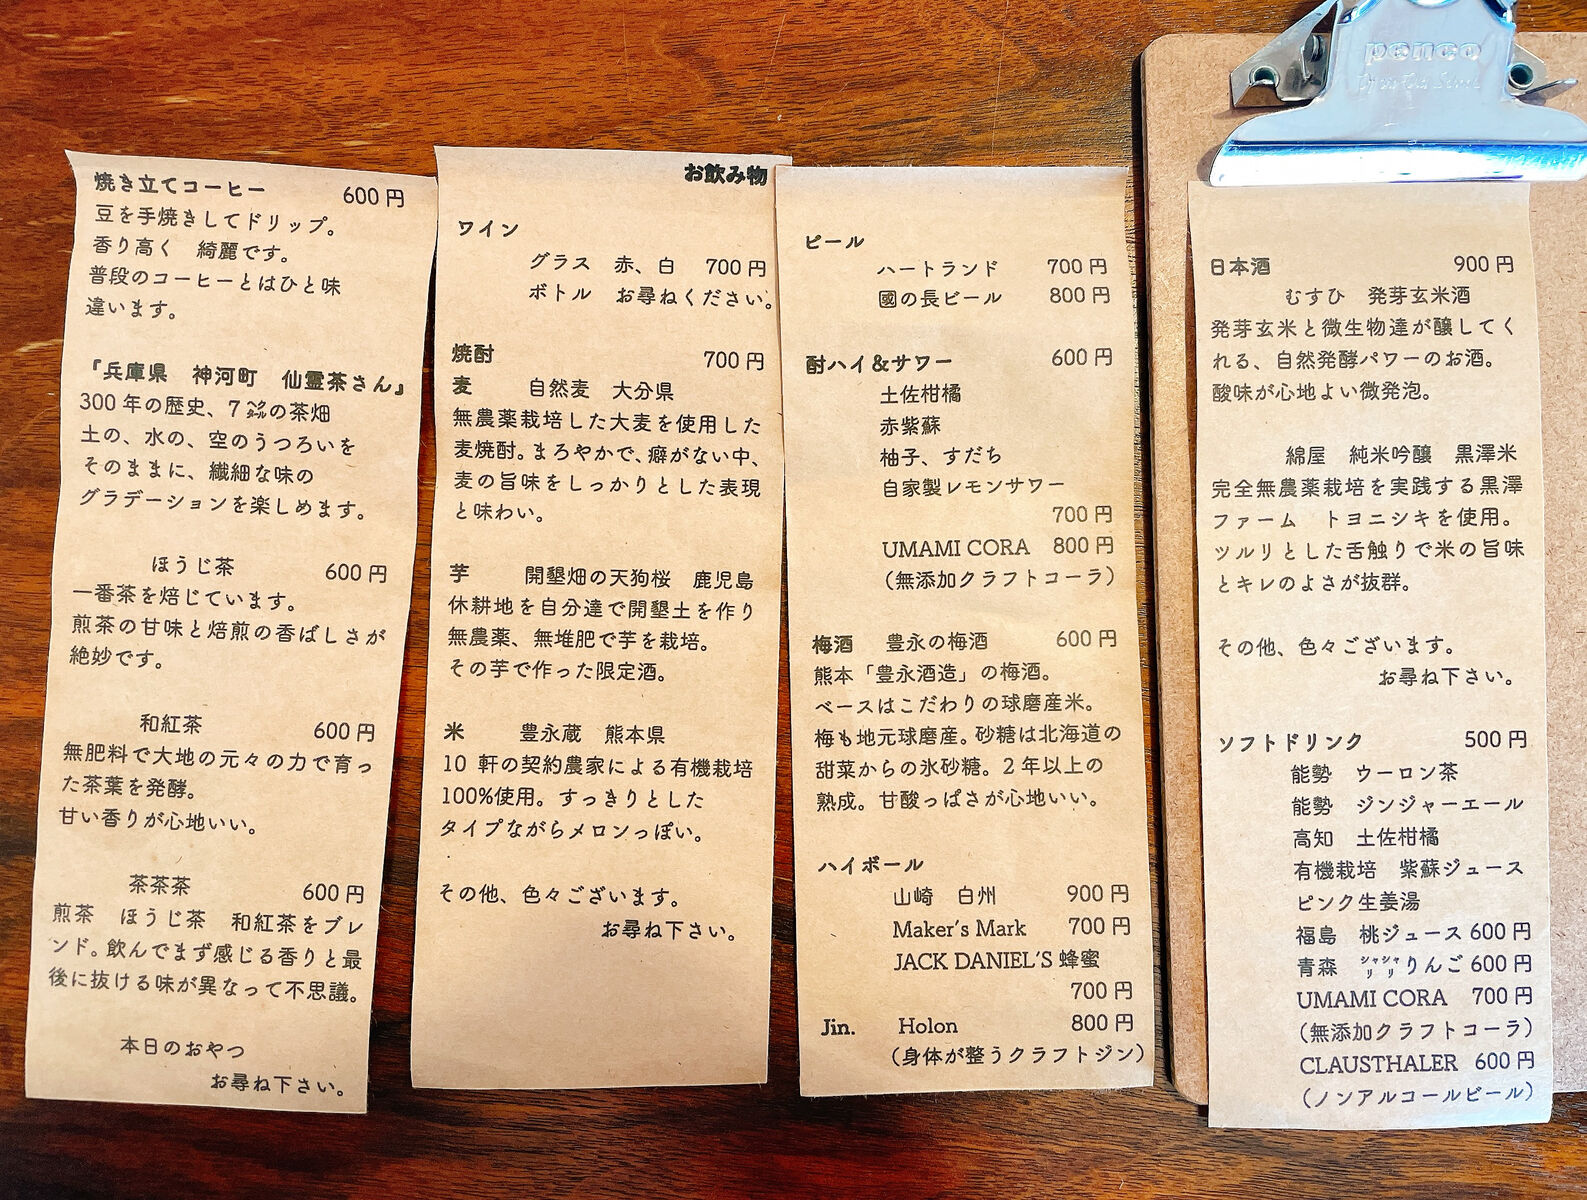 焼き立てコーヒー 600円
豆を手焼きしてドリップ。
香り高く 綺麗です。
普段のコーヒーとはひと味
違います。
『兵庫県 神河町 仙霊茶さん』
300年の歴史、7㌶の茶畑
土の、水の、空のうつろいを
そのままに、繊細な味の
グラデーションを楽しめます。
ほうじ茶 600円
一番茶を焙じています。
煎茶の甘味と焙煎の香ばしさが
絶妙です。
和紅茶 600円
無肥料で大地の元々の力で育っ
た茶葉を発酵。
甘い香りが心地いい。
茶茶茶 600円
煎茶 ほうじ茶 和紅茶をブレ
ンド。飲んでまず感じる香りと最
後に抜ける味が異なって不思議。
本日のおやつ
お尋ね下さい。
お飲み物
ワイン
グラス 赤、白 700円
ボトル お尋ねください。
焼酎 700円
麦 自然麦 大分県
無農薬栽培した大麦を使用した
麦焼酎。まろやかで、癖がない中、
麦の旨味をしっかりとした表現
と味わい。
芋 開墾畑の天狗桜 鹿児島
休耕地を自分達で開墾土を作り
無農薬、無堆肥で芋を栽培。
その芋で作った限定酒。
米 豊永蔵 熊本県
10 軒の契約農家による有機栽培
100%使用。すっきりとした
タイプながらメロンっぽい。
その他、色々ございます。
お尋ね下さい。
ビール
ハートランド 700円
國の長ビール 800円
酎ハイ&サワー 600円
土佐柑橘
赤紫蘇
柚子、すだち
自家製レモンサワー
700円
UMAMI CORA 800円
（無添加クラフトコーラ）
梅酒 豊永の梅酒 600円
熊本「豊永酒造」の梅酒。
ベースはこだわりの球磨産米。
梅も地元球磨産。砂糖は北海道の
甜菜からの氷砂糖。2年以上の
熟成。甘酸っぱさが心地いい。
ハイボール
山崎 白州 900円
Maker's Mark 700円
JACK DANIEL'S 蜂蜜
700円
Jin. Holon 800円
（身体が整うクラフトジン）
penco
日本酒 900円
むすひ 発芽玄米酒
発芽玄米と微生物達が醸してく
れる、自然発酵パワーのお酒。
酸味が心地よい微発泡。
綿屋 純米吟醸 黒澤米
完全無農薬栽培を実践する黒澤
ファーム トヨニシキを使用。
ツルリとした舌触りで米の旨味
とキレのよさが抜群。
その他、色々ございます。
お尋ね下さい。
ソフトドリンク 500円
能勢 ウーロン茶
能勢 ジンジャーエール
高知 土佐柑橘
有機栽培 紫蘇ジュース
ピンク生姜湯
福島 桃ジュース 600円
青森 シャリシャリりんご 600円
UMAMI CORA 700円
（無添加クラフトコーラ）
CLAUSTHALER 600円
（ノンアルコールビール）